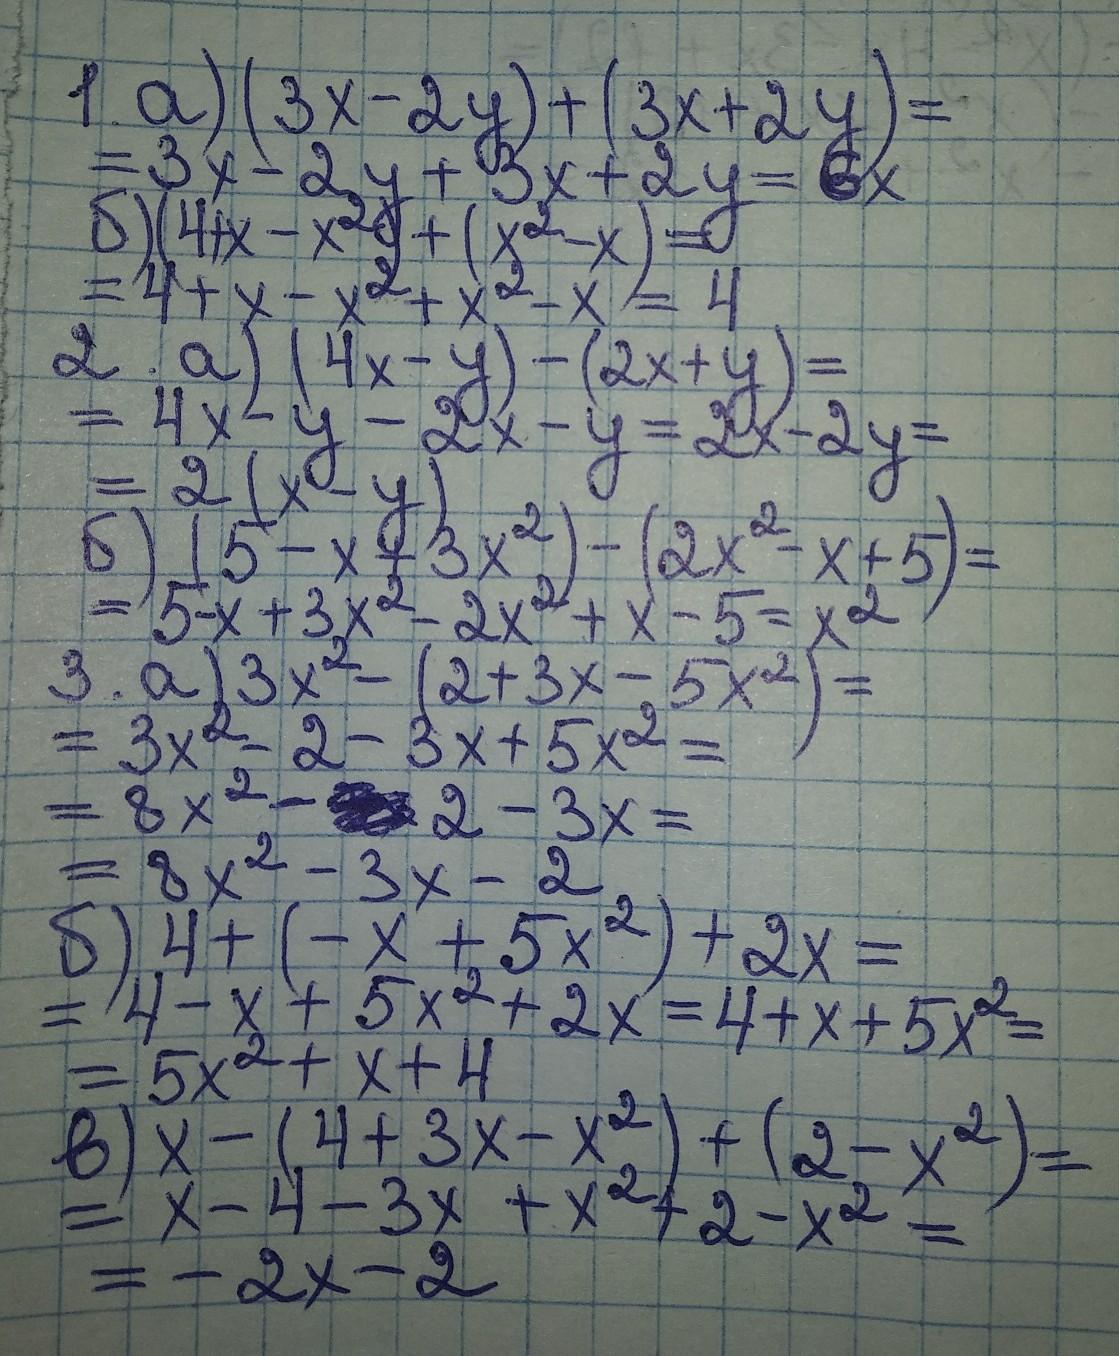 1. а) (3x-2y)+(3x+2y)=
=3x-2y+3x+2y=6x
б) (4+x-x²)+(x²-x)=
=4+x-x²+x²-x=4
2. а) (4x-y)-(2x+y)=
=4x-y-2x-y=2x-2y=
=2(x-y)
б) (5-x+3x²)-(2x²-x+5)=
=5-x+3x²-2x²+x-5=x²
3. а) 3x²-(2+3x-5x²)=
=3x²-2-3x+5x²=
=8x²-2-3x=
=8x²-3x-2
б) 4+(-x+5x²)+2x=
=4-x+5x²+2x=4+x+5x²=
=5x²+x+4
в) x-(4+3x-x²)+(2-x²)=
=x-4-3x+x²+2-x²=
=-2x-2